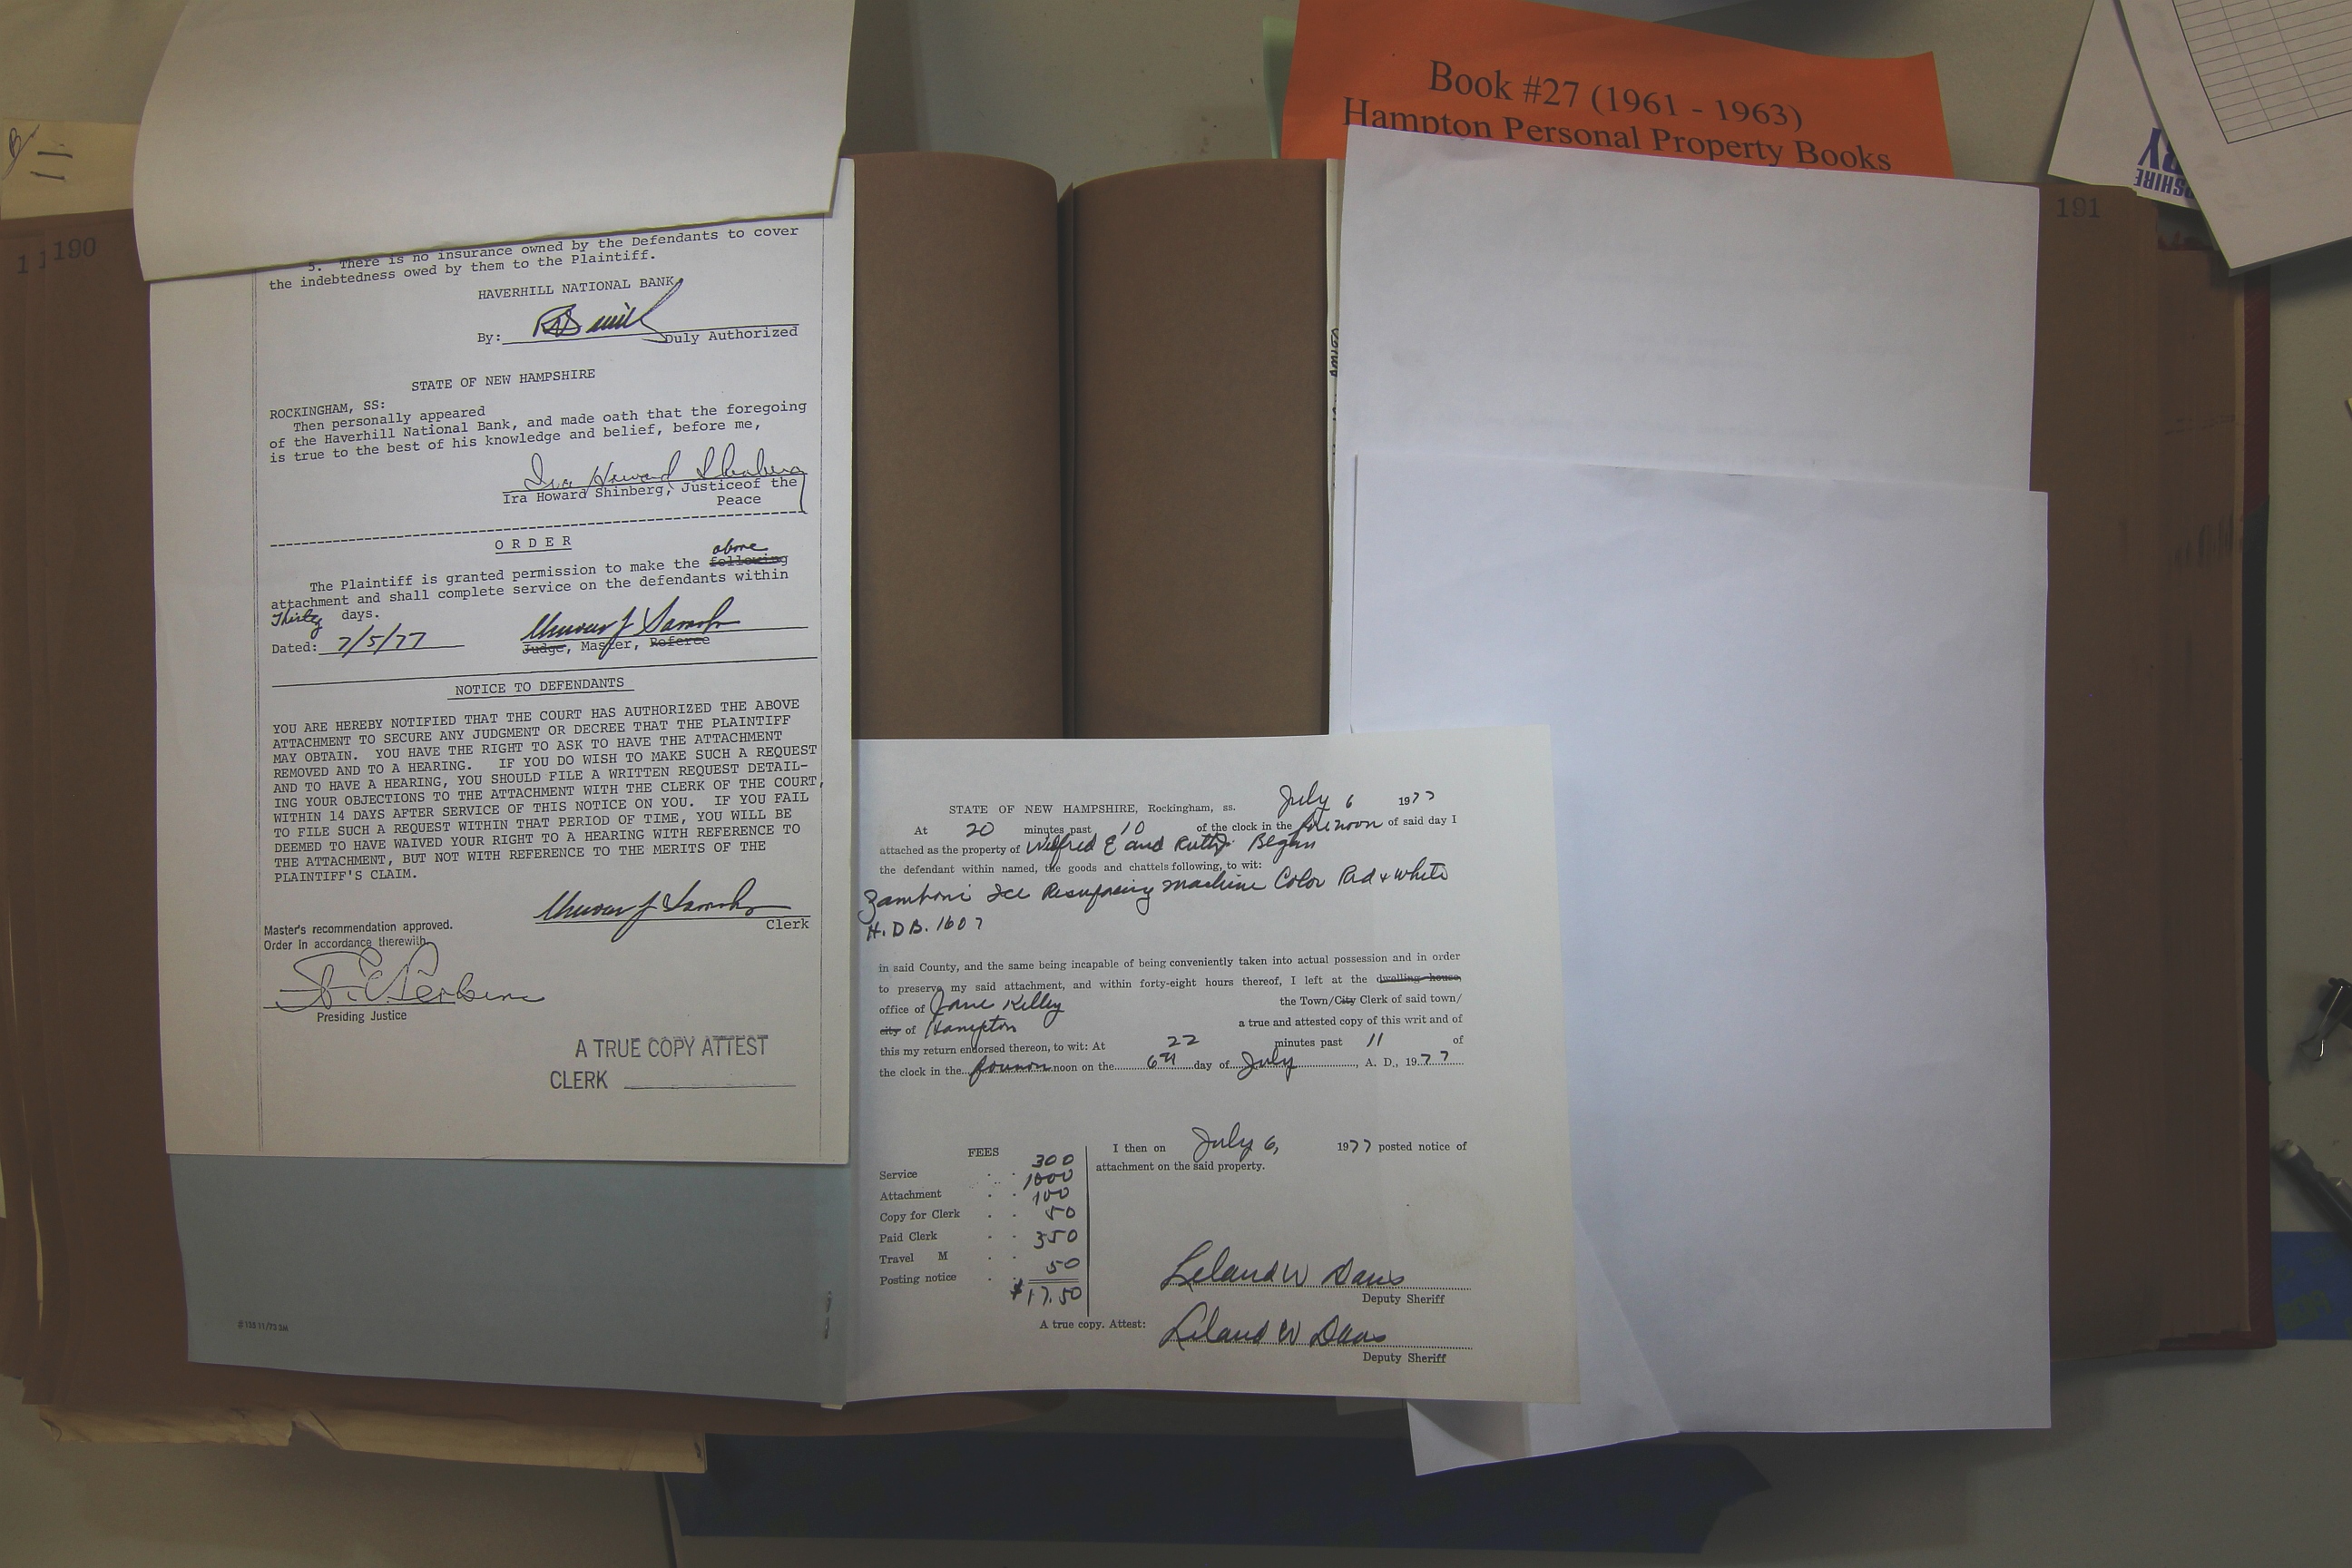 Book #27 (1961 - 1963)
Hampton Personal Property Books
190
191
5. There is no insurance owned by the Defendants to cover
the indebtedness owed by them to the Plaintiff.
HAVERHILL NATIONAL BANK
By: Duly Authorized
STATE OF NEW HAMPSHIRE
ROCKINGHAM, SS:
Then personally appeared
of the Haverhill National Bank, and made oath that the foregoing
is true to the best of his knowledge and belief, before me,
Ira Howard Shinberg
Ira Howard Shinberg, Justiceof the
Peace
ORDER
above
The Plaintiff is granted permission to make the following
attachment and shall complete service on the defendants within
Thirty days.
Dated: 7/5/77
Judge, Master, Referee
NOTICE TO DEFENDANTS
YOU ARE HEREBY NOTIFIED THAT THE COURT HAS AUTHORIZED THE ABOVE
ATTACHMENT TO SECURE ANY JUDGMENT OR DECREE THAT THE PLAINTIFF
MAY OBTAIN. YOU HAVE THE RIGHT TO ASK TO HAVE THE ATTACHMENT
REMOVED AND TO A HEARING. IF YOU DO WISH TO MAKE SUCH A REQUEST
AND TO HAVE A HEARING, YOU SHOULD FILE A WRITTEN REQUEST DETAIL-
ING YOUR OBJECTIONS TO THE ATTACHMENT WITH THE CLERK OF THE COURT,
WITHIN 14 DAYS AFTER SERVICE OF THIS NOTICE ON YOU. IF YOU FAIL
TO FILE SUCH A REQUEST WITHIN THAT PERIOD OF TIME, YOU WILL BE
DEEMED TO HAVE WAIVED YOUR RIGHT TO A HEARING WITH REFERENCE TO
THE ATTACHMENT, BUT NOT WITH REFERENCE TO THE MERITS OF THE
PLAINTIFF'S CLAIM.
Clerk
Master's recommendation approved.
Order In accordance therewith.
Presiding Justice
A TRUE COPY ATTEST
CLERK
STATE OF NEW HAMPSHIRE, Rockingham, ss. July 6 1977
At 20 minutes past 10 of the clock in the forenoon of said day I
attached as the property of Wilfred E and Ruth J. Began
the defendant within named, the goods and chattels following, to wit:
Zamboni Ice Resurfacing machine Color Red & white
H.D.B. 1607
in said County, and the same being incapable of being conveniently taken into actual possession and in order
to preserve my said attachment, and within forty-eight hours thereof, I left at the dwelling house,
office of Jane Kelley the Town/City Clerk of said town/
city of Hampton a true and attested copy of this writ and of
this my return endorsed thereon, to wit: At 22 minutes past 11 of
the clock in the noon on the 6th day of July, A. D., 1977
FEES
Service 300
Attachment 1000
Copy for Clerk 100
Paid Clerk 50
Travel M 350
Posting notice 50
$17.50
I then on July 6, 1977 posted notice of
attachment on the said property.
Leland W Davis
Deputy Sheriff
A true copy. Attest: Leland W Davis
Deputy Sheriff